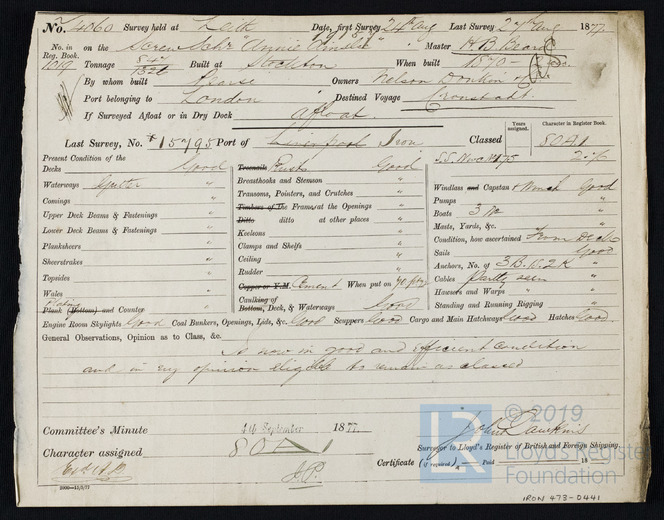 No. 4060 Survey held at Leith Date, first Survey 24th Aug Last Survey 27th Aug 1877
No. in Reg. Book. 1019 on the Screw Schr "Annie Ainslie" Master
Tonnage 847 1326 Built at Stockton When built 1870
By whom built Pearse Owners Nelson Donkin & Co.
Port belonging to London Destined Voyage Cronstadt.
If Surveyed Afloat or in Dry Dock afloat.
Years assigned. Character in Register Book.
Last Survey, No. 15795 Port of Liverpool Iron Classed 80A1
Present Condition of the
Decks Good
Waterways Gutter "
Comings "
Upper Deck Beams & Fastenings "
Lower Deck Beams & Fastenings "
Planksheers "
Sheerstrakes "
Topsides "
Wales "
Plating
Plank (Bottom) and Counter "
Treenails Rivets Good
Breasthooks and Stemson "
Transoms, Pointers, and Crutches "
Timbers of the Frames, at the Openings "
Ditto ditto at other places "
Keelsons "
Clamps and Shelfs "
Ceiling "
Rudder "
Copper or Y.M. Cement When put on
Caulking of Bottom, Deck, & Waterways Good
Windlass and Capstan & Winch Good
Pumps "
Boats 3 "
Masts, Yards, &c. "
Condition, how ascertained from Deck
Sails Good
Anchors, No. of 3 B. 1 S. 2 K "
Cables Partly seen
Hawsers and Warps "
Standing and Running Rigging "
Engine Room Skylights Good Coal Bunkers, Openings, Lids, &c. Good Scuppers Good Cargo and Main Hatchways Good Hatches Good.
General Observations, Opinion as to Class, &c.
Is now in good and efficient condition
and in my opinion eligible to remain as classed
Committee's Minute 4th September 1877
Character assigned 80A
Surveyor to Lloyd's Register of British and Foreign Shipping.
Certificate (if required) Paid 18
© 2019
LR
Lloyd's Register
Foundation
IRON 473-0441